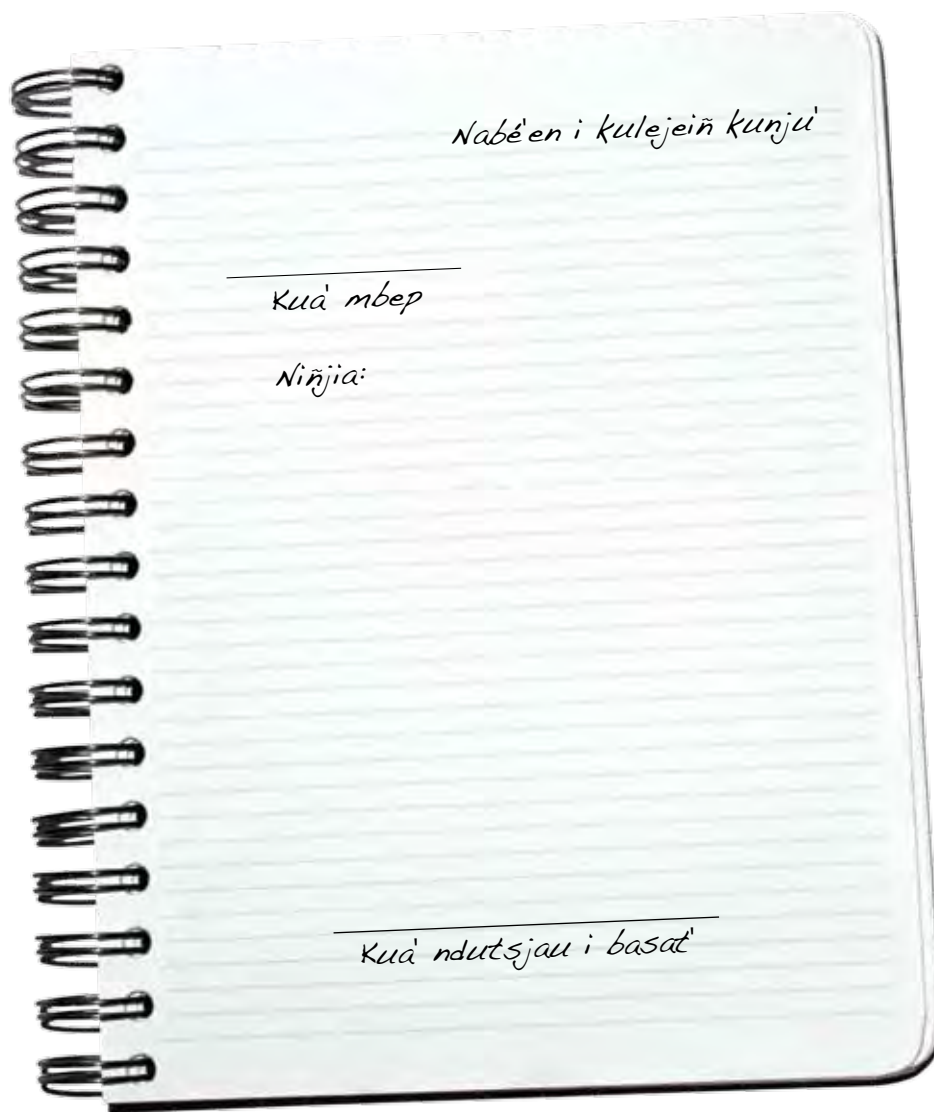 Nabé'en i kulejeiñ kunju'
Kua' mbep
Niñjia:
Kua' ndutsjau i basat'